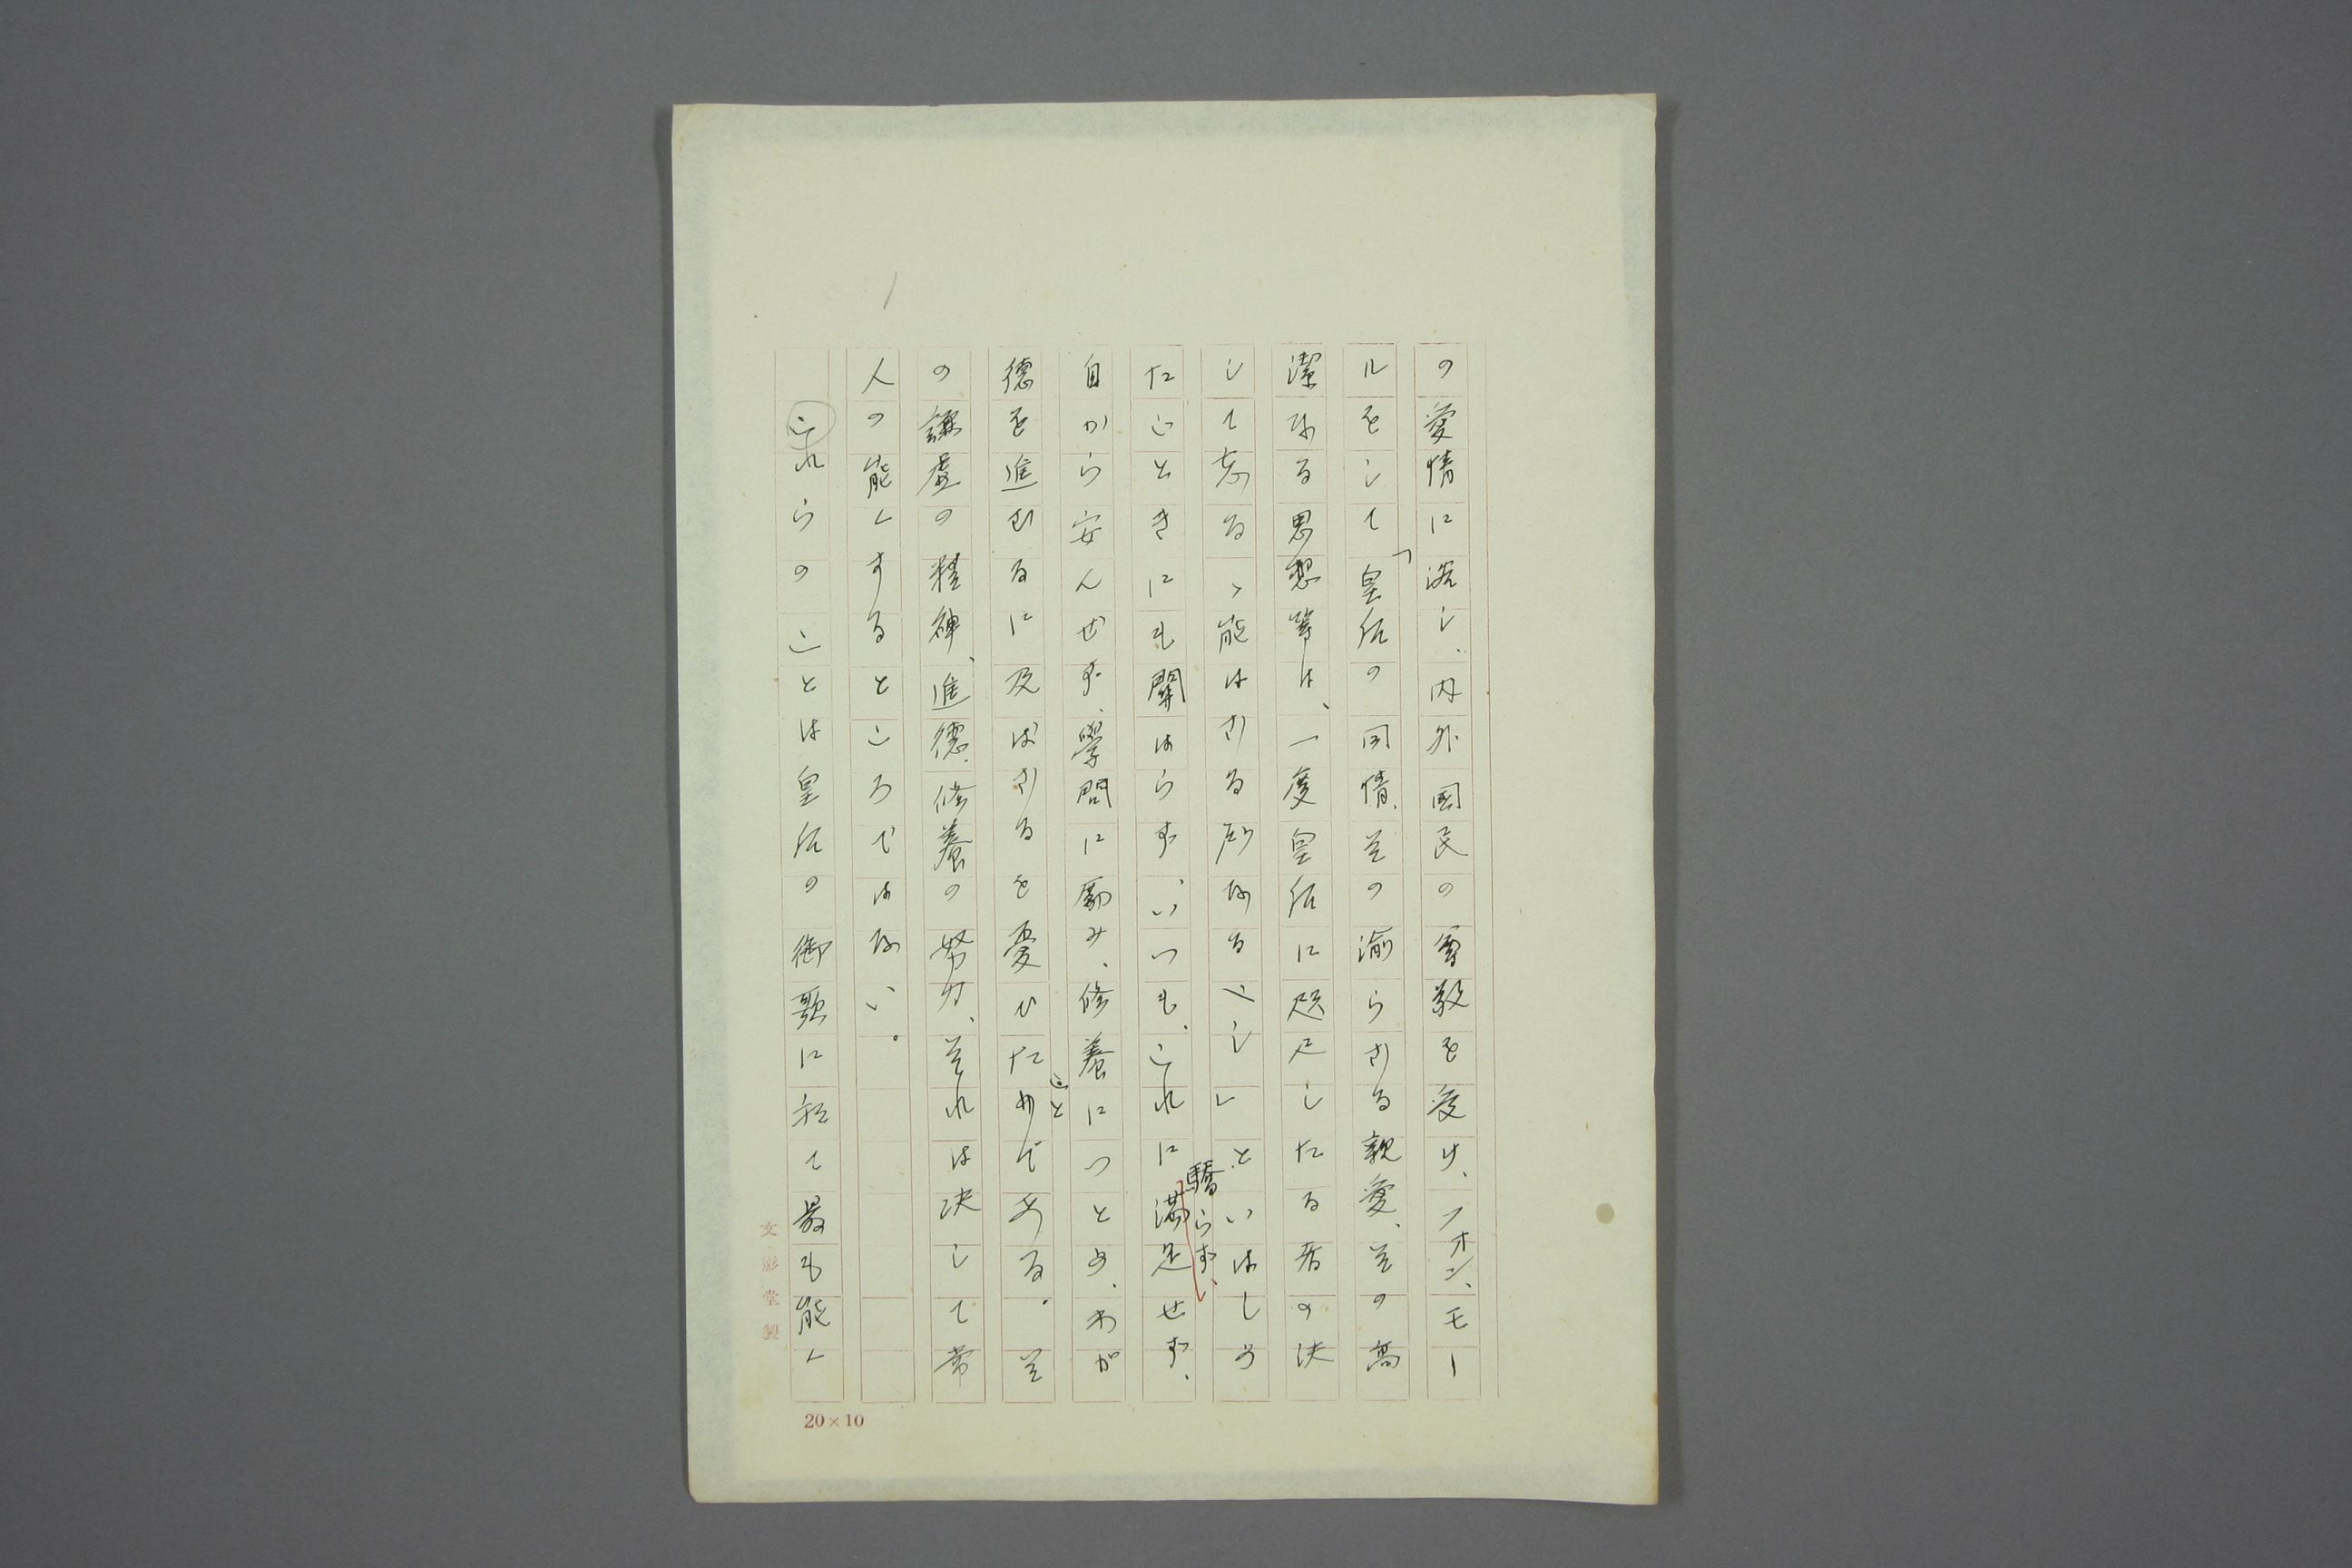 の愛情に浴し、内外國民の尊敬を受け、フォン、モー
ルをして「皇后の同情、其の渝らざる親愛、其の高
潔なる思想等は、一度皇后に咫尺したる者の決
して忘るゝ能はざる所なるべし」といはしめ
たごときにも關はらず、いつも、これに驕らず、滿足せず、
自から安んぜず、學問に勵み、修養につとめ、わが
德を進むるに及ばざるを憂ひたわごとである。其
の謙虚の精神、進德、修養の努力、それは決して常
人の能くするところではない。
これらのことは皇后の御歌に於て最も能く
文彭堂製
20×10